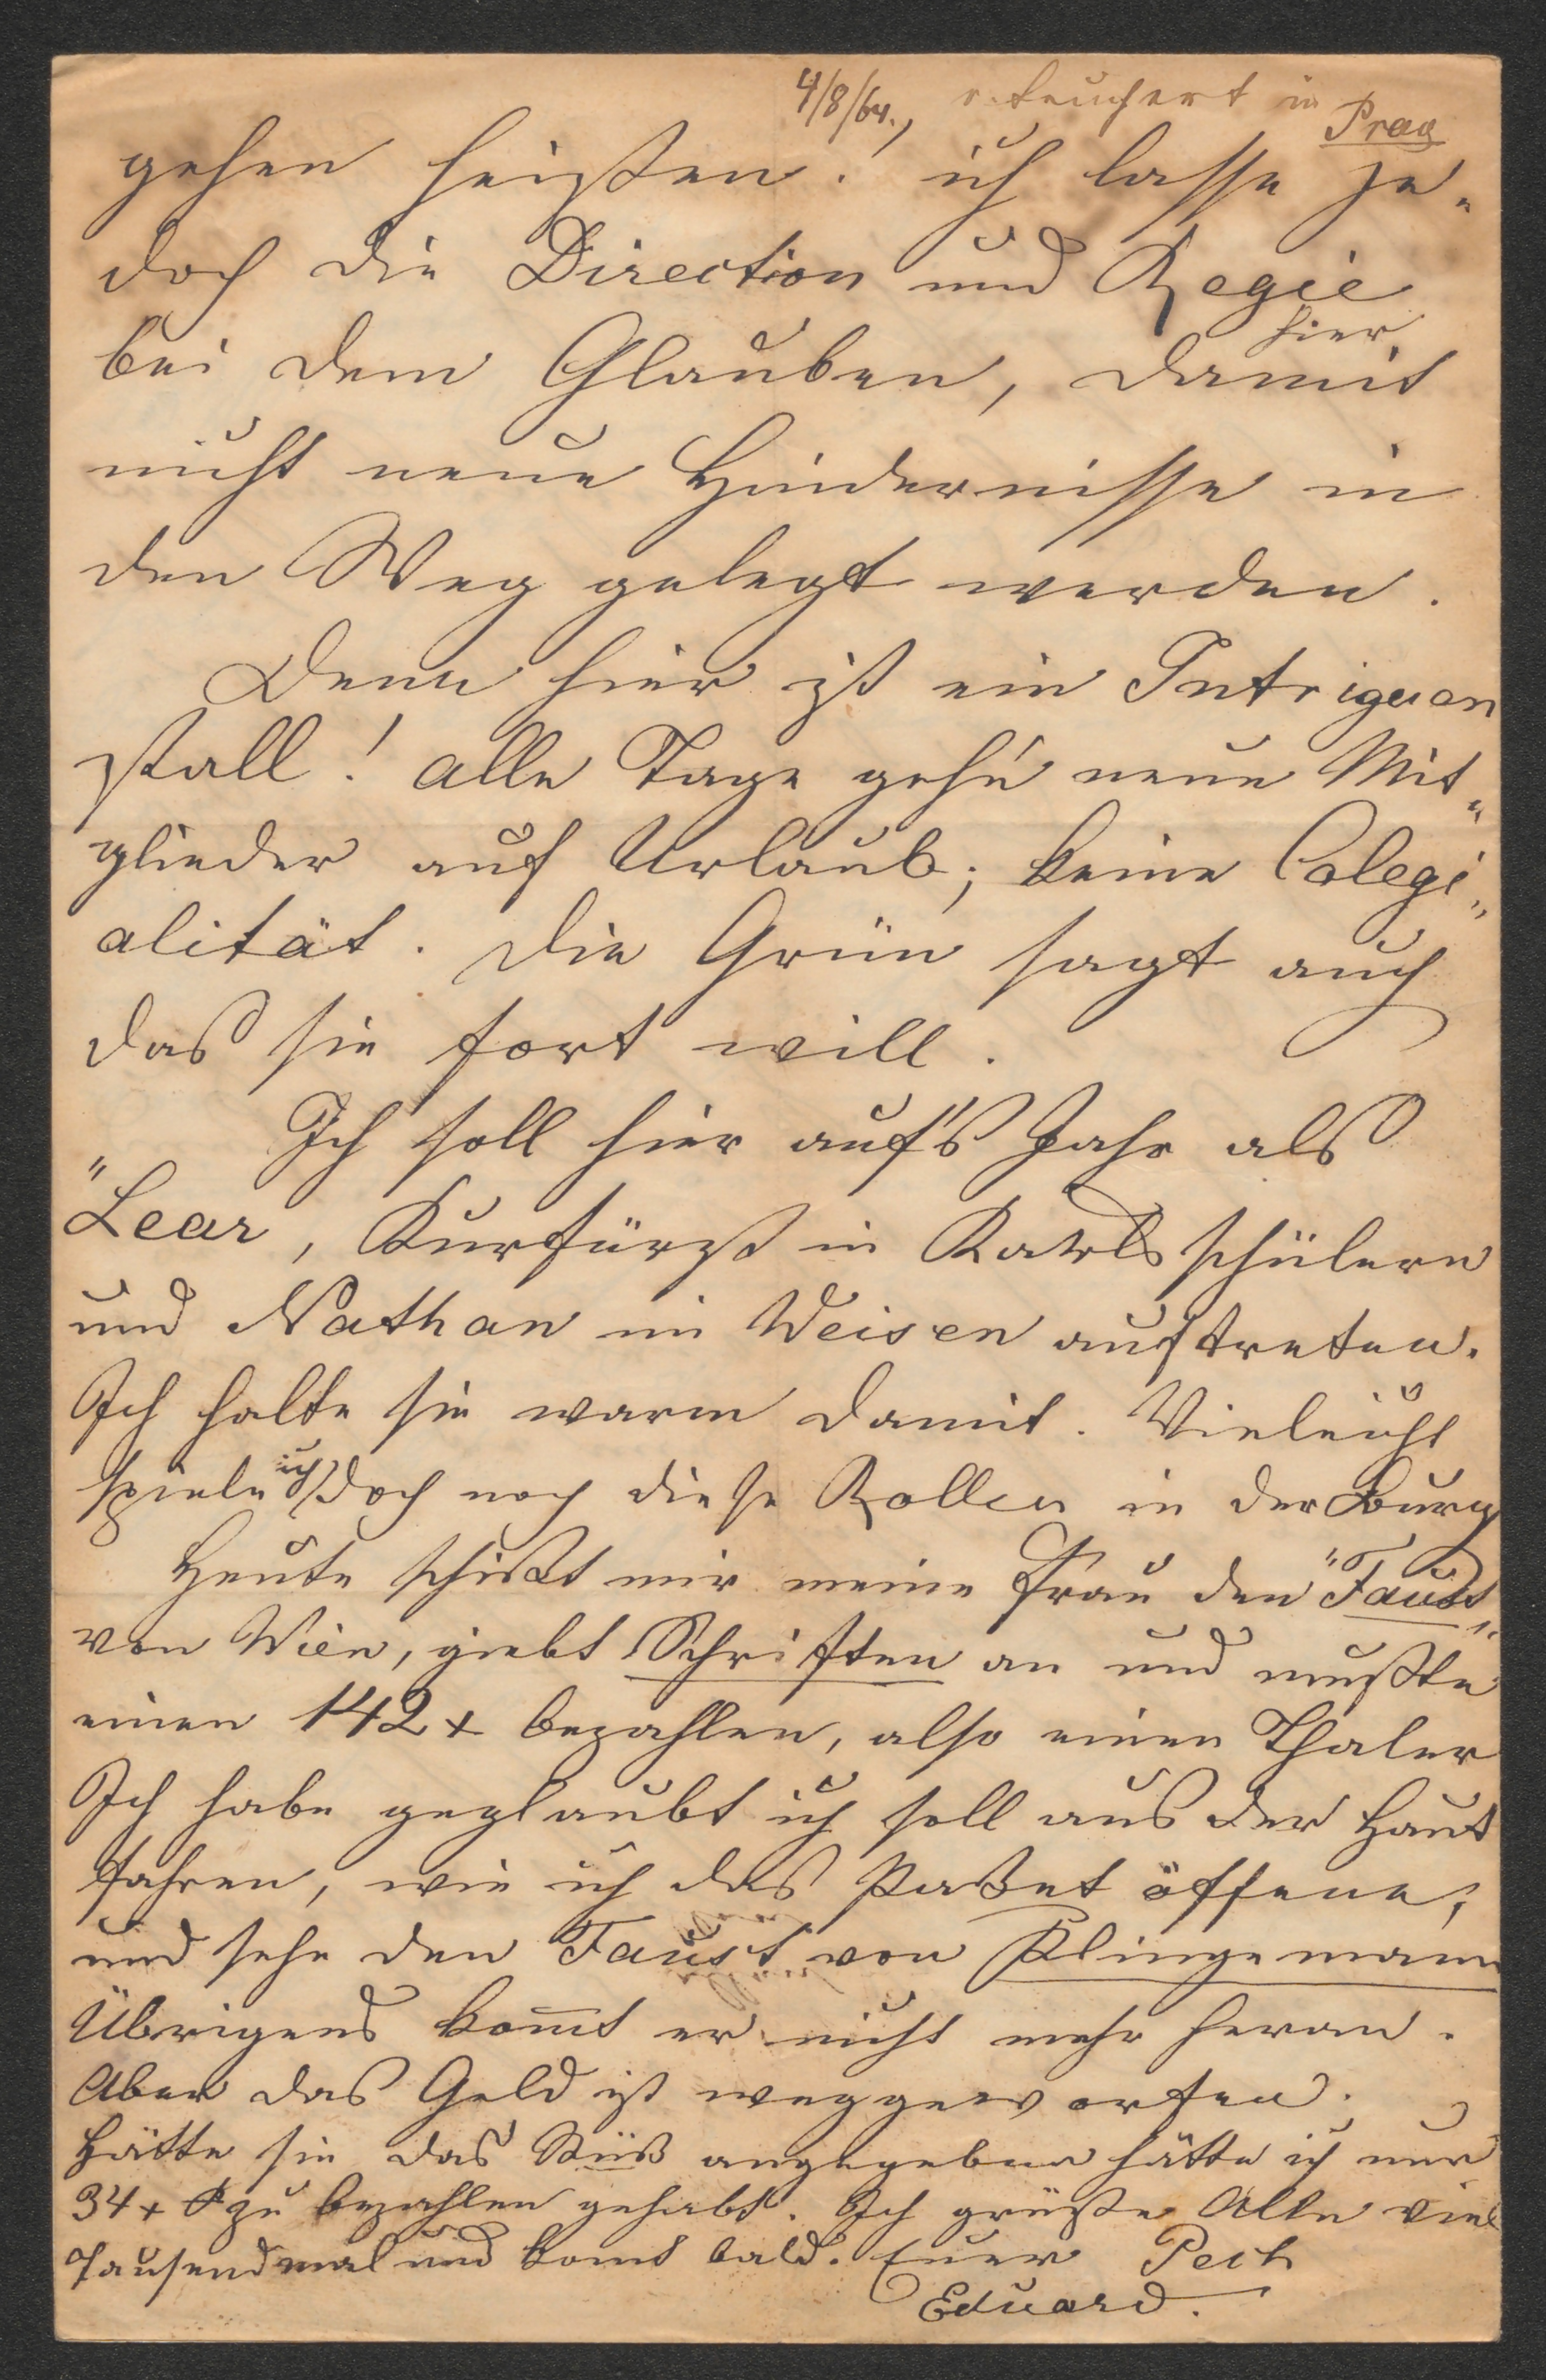 4/8/64., v. Teuchert in Prag
gehen heißen. ich lasse je-
doch die Direction und Regie
hier
bei dem Glauben, damit
nicht neue Hindernisse in
den Weg gelegt werden.
Denn hier ist ein Intriguen
stall! alle Tage gehn neue Mit-
glieder auf Urlaub; keine Colegi-
alität. Die Grün sagt auch
das sie fort will.
Ich soll hier auf's Jahr als
"Lear, Kurfürst in Karlsschülern
und Nathan im Weisen auftreten.
Ich halte sie warm damit. Vieleicht
spiele ich doch noch diese Rollen in der Burg
Heute schikt mir meine Frau den "Faust"
von Wien, giebt Schriften an und mußte
einen 142 x bezahlen, also einen Thaler
Ich habe geglaubt ich soll aus der Haut
fahren, wie ich das Paket öffene,
und sehe den Faust von Klingemann
Übrigens kom̄t er nicht mehr heran.
Aber das Geld ist weggeworfen.
Hätte sie das Stük angegeben hätte ich nur
34 x zu bezahlen gehabt. Ich grüße Alle viel
Tausendmal und komt bald. Euer Pech
Eduard.